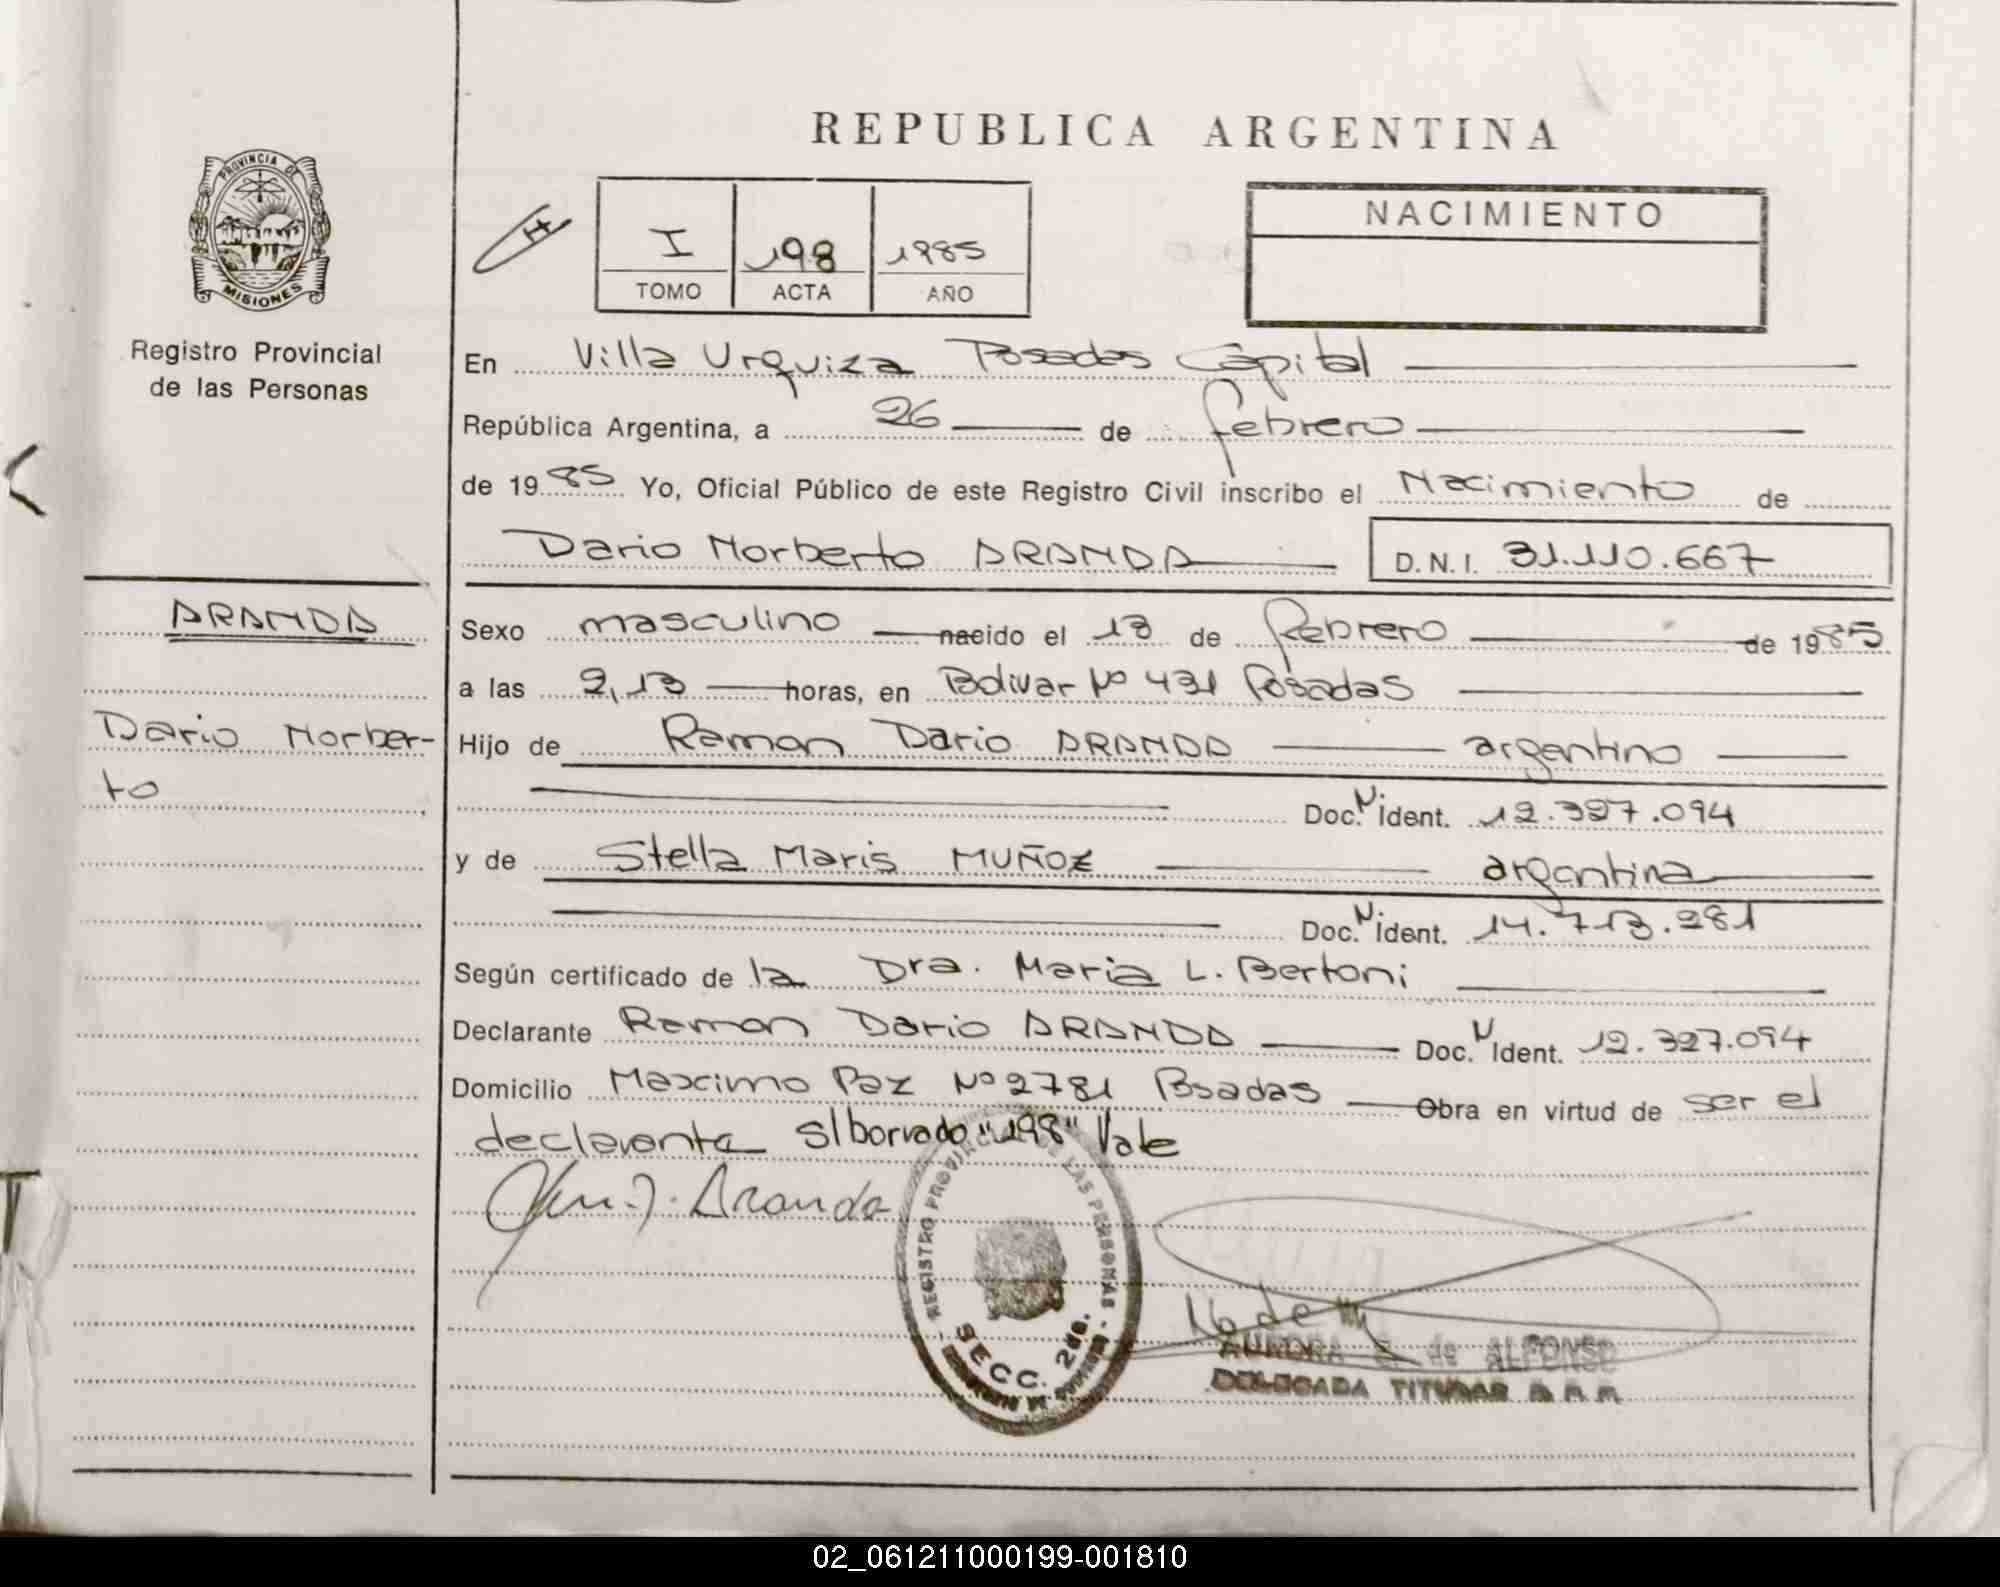 REPUBLICA ARGENTINA
PROVINCIA DE
MISIONES
Registro Provincial
de las Personas
I 198 1985
TOMO ACTA AÑO
NACIMIENTO
En Villa Urquiza Posadas Capital
República Argentina, a 26 de febrero
de 1985 Yo, Oficial Público de este Registro Civil inscribo el Nacimiento de
Dario Norberto ARANDA D.N.I. 31.110.667
ARANDA
Dario Norber-
to
Sexo masculino nacido el 13 de Febrero de 1985
a las 2,13 horas, en Bolivar Nº 431 Posadas
Hijo de Ramon Dario ARANDA argentino
Doc. N. Ident. 12.327.094
y de Stella Maris MUÑOZ argentina
Doc. N. Ident. 14.713.281
Según certificado de la Dra. Maria L. Bertoni
Declarante Ramon Dario ARANDA Doc. N Ident. 12.327.094
Domicilio Maximo Paz Nº 2781 Posadas Obra en virtud de ser el
declarante s/borrado "198" Vale
Aranda
REGISTRO PROVINCIAL DE LAS PERSONAS
SECC. 2da.
AURORA de ALFONSO
DELEGADA TITULAR
02_061211000199-001810